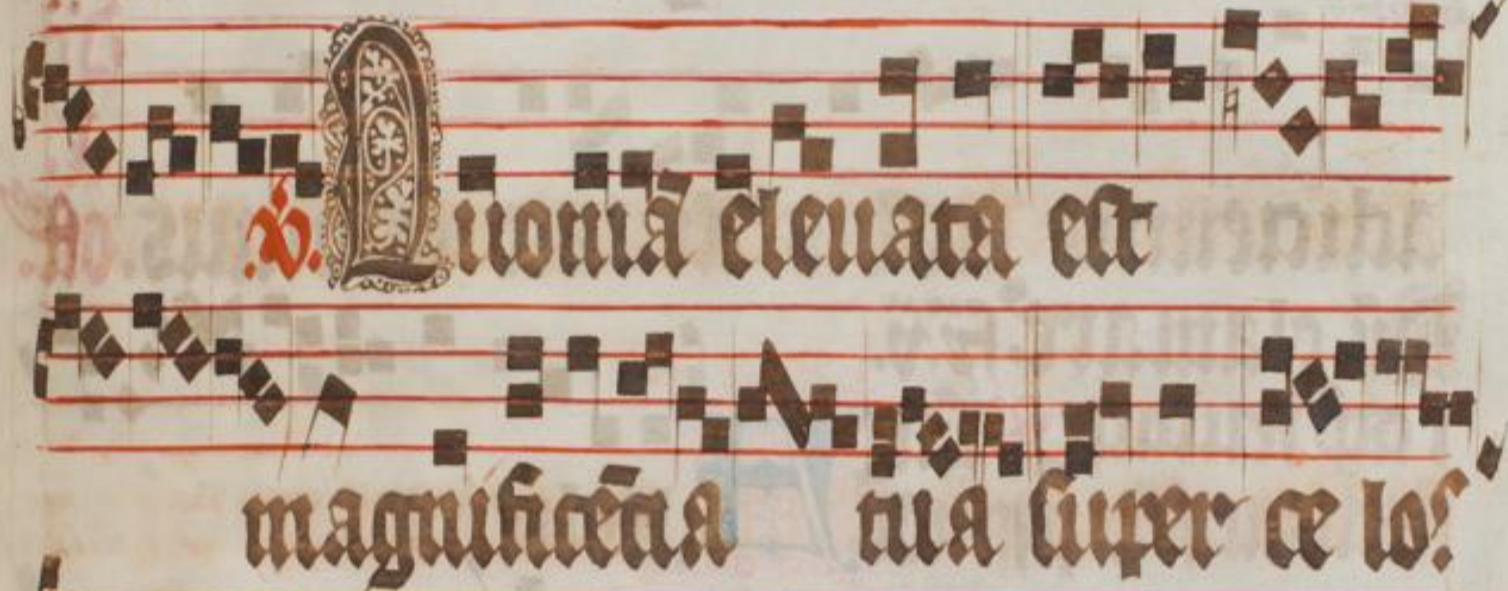 ℣. Quoniā eleuata est
magnificētia tua super ce los